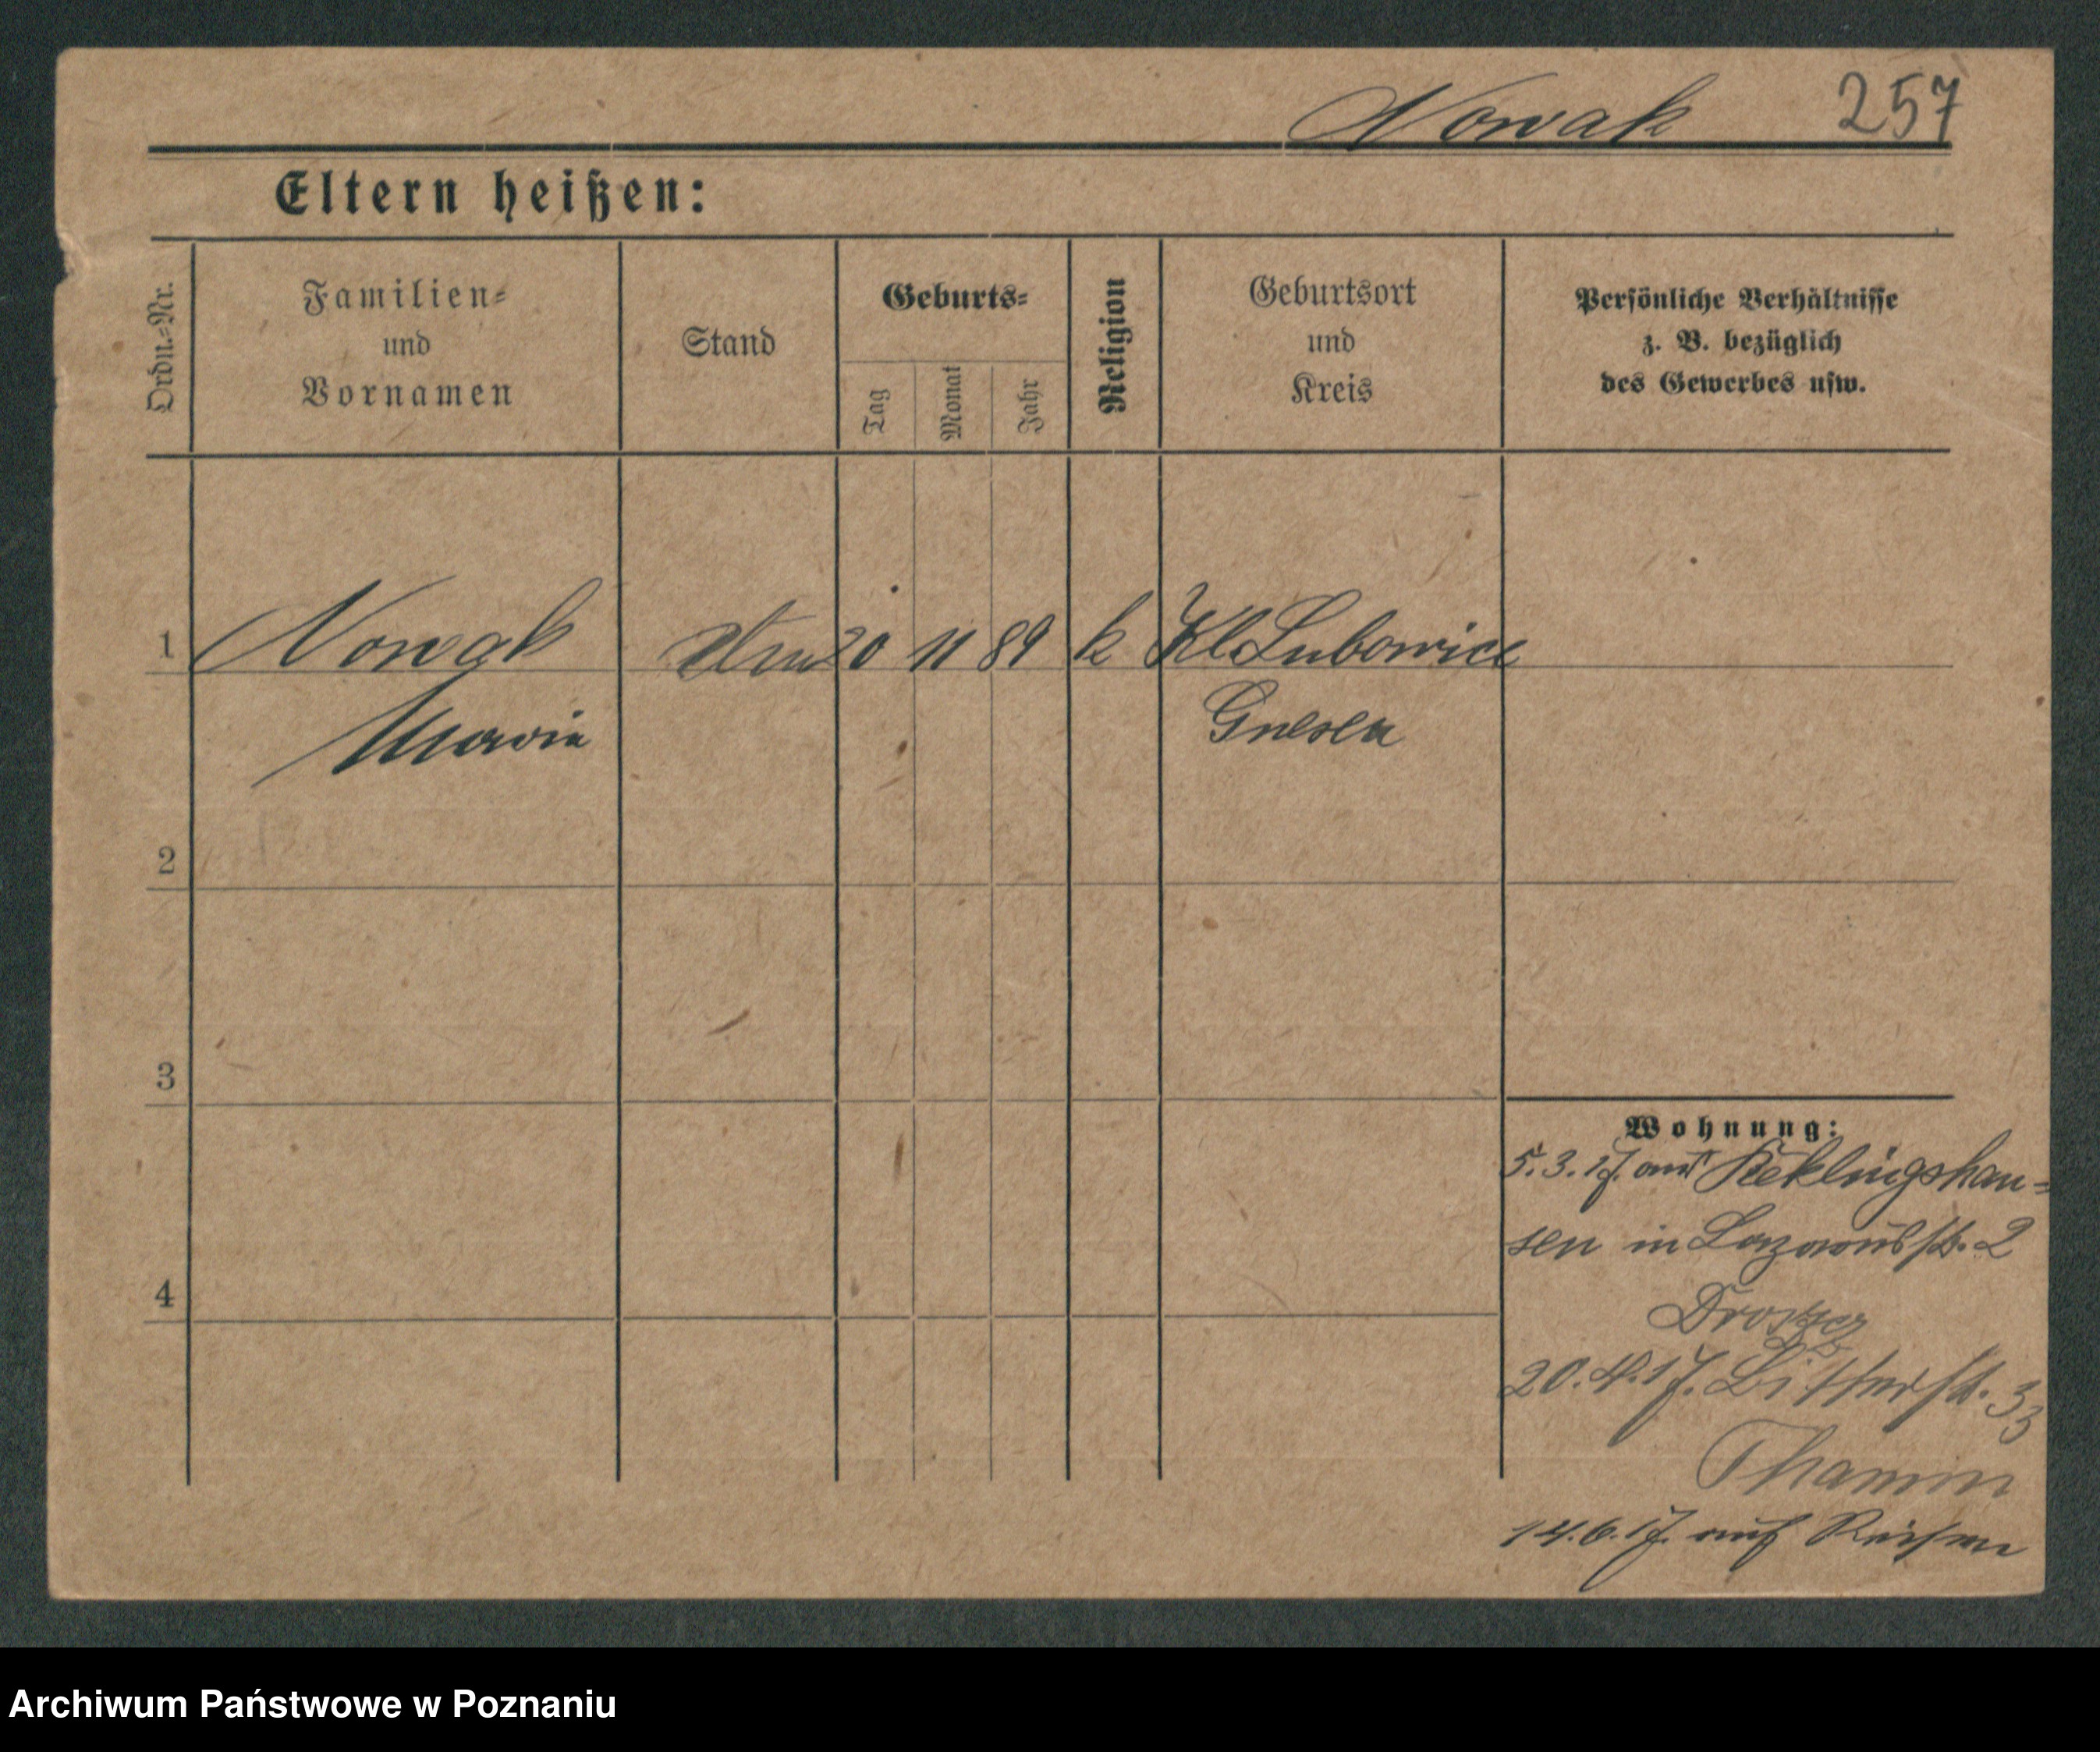 Nowak 257
Eltern heißen:
Ordn.=Nr.
Familien=
und
Vornamen
Stand
Geburts=
Tag
Monat
Jahr
Religion
Geburtsort
und
Kreis
Persönliche Verhältnisse
z. B. bezüglich
des Gewerbes usw.
1 Nowak 20 11 89 k Kl Lubowice
Marie Gnesen
2
3
4
Wohnung:
5.3.17. aus Reklingshau=
sen in Lazarusstr. 2
20.4.17. 33
Thamm
14.6.17. auf Reisen
Archiwum Państwowe w Poznaniu